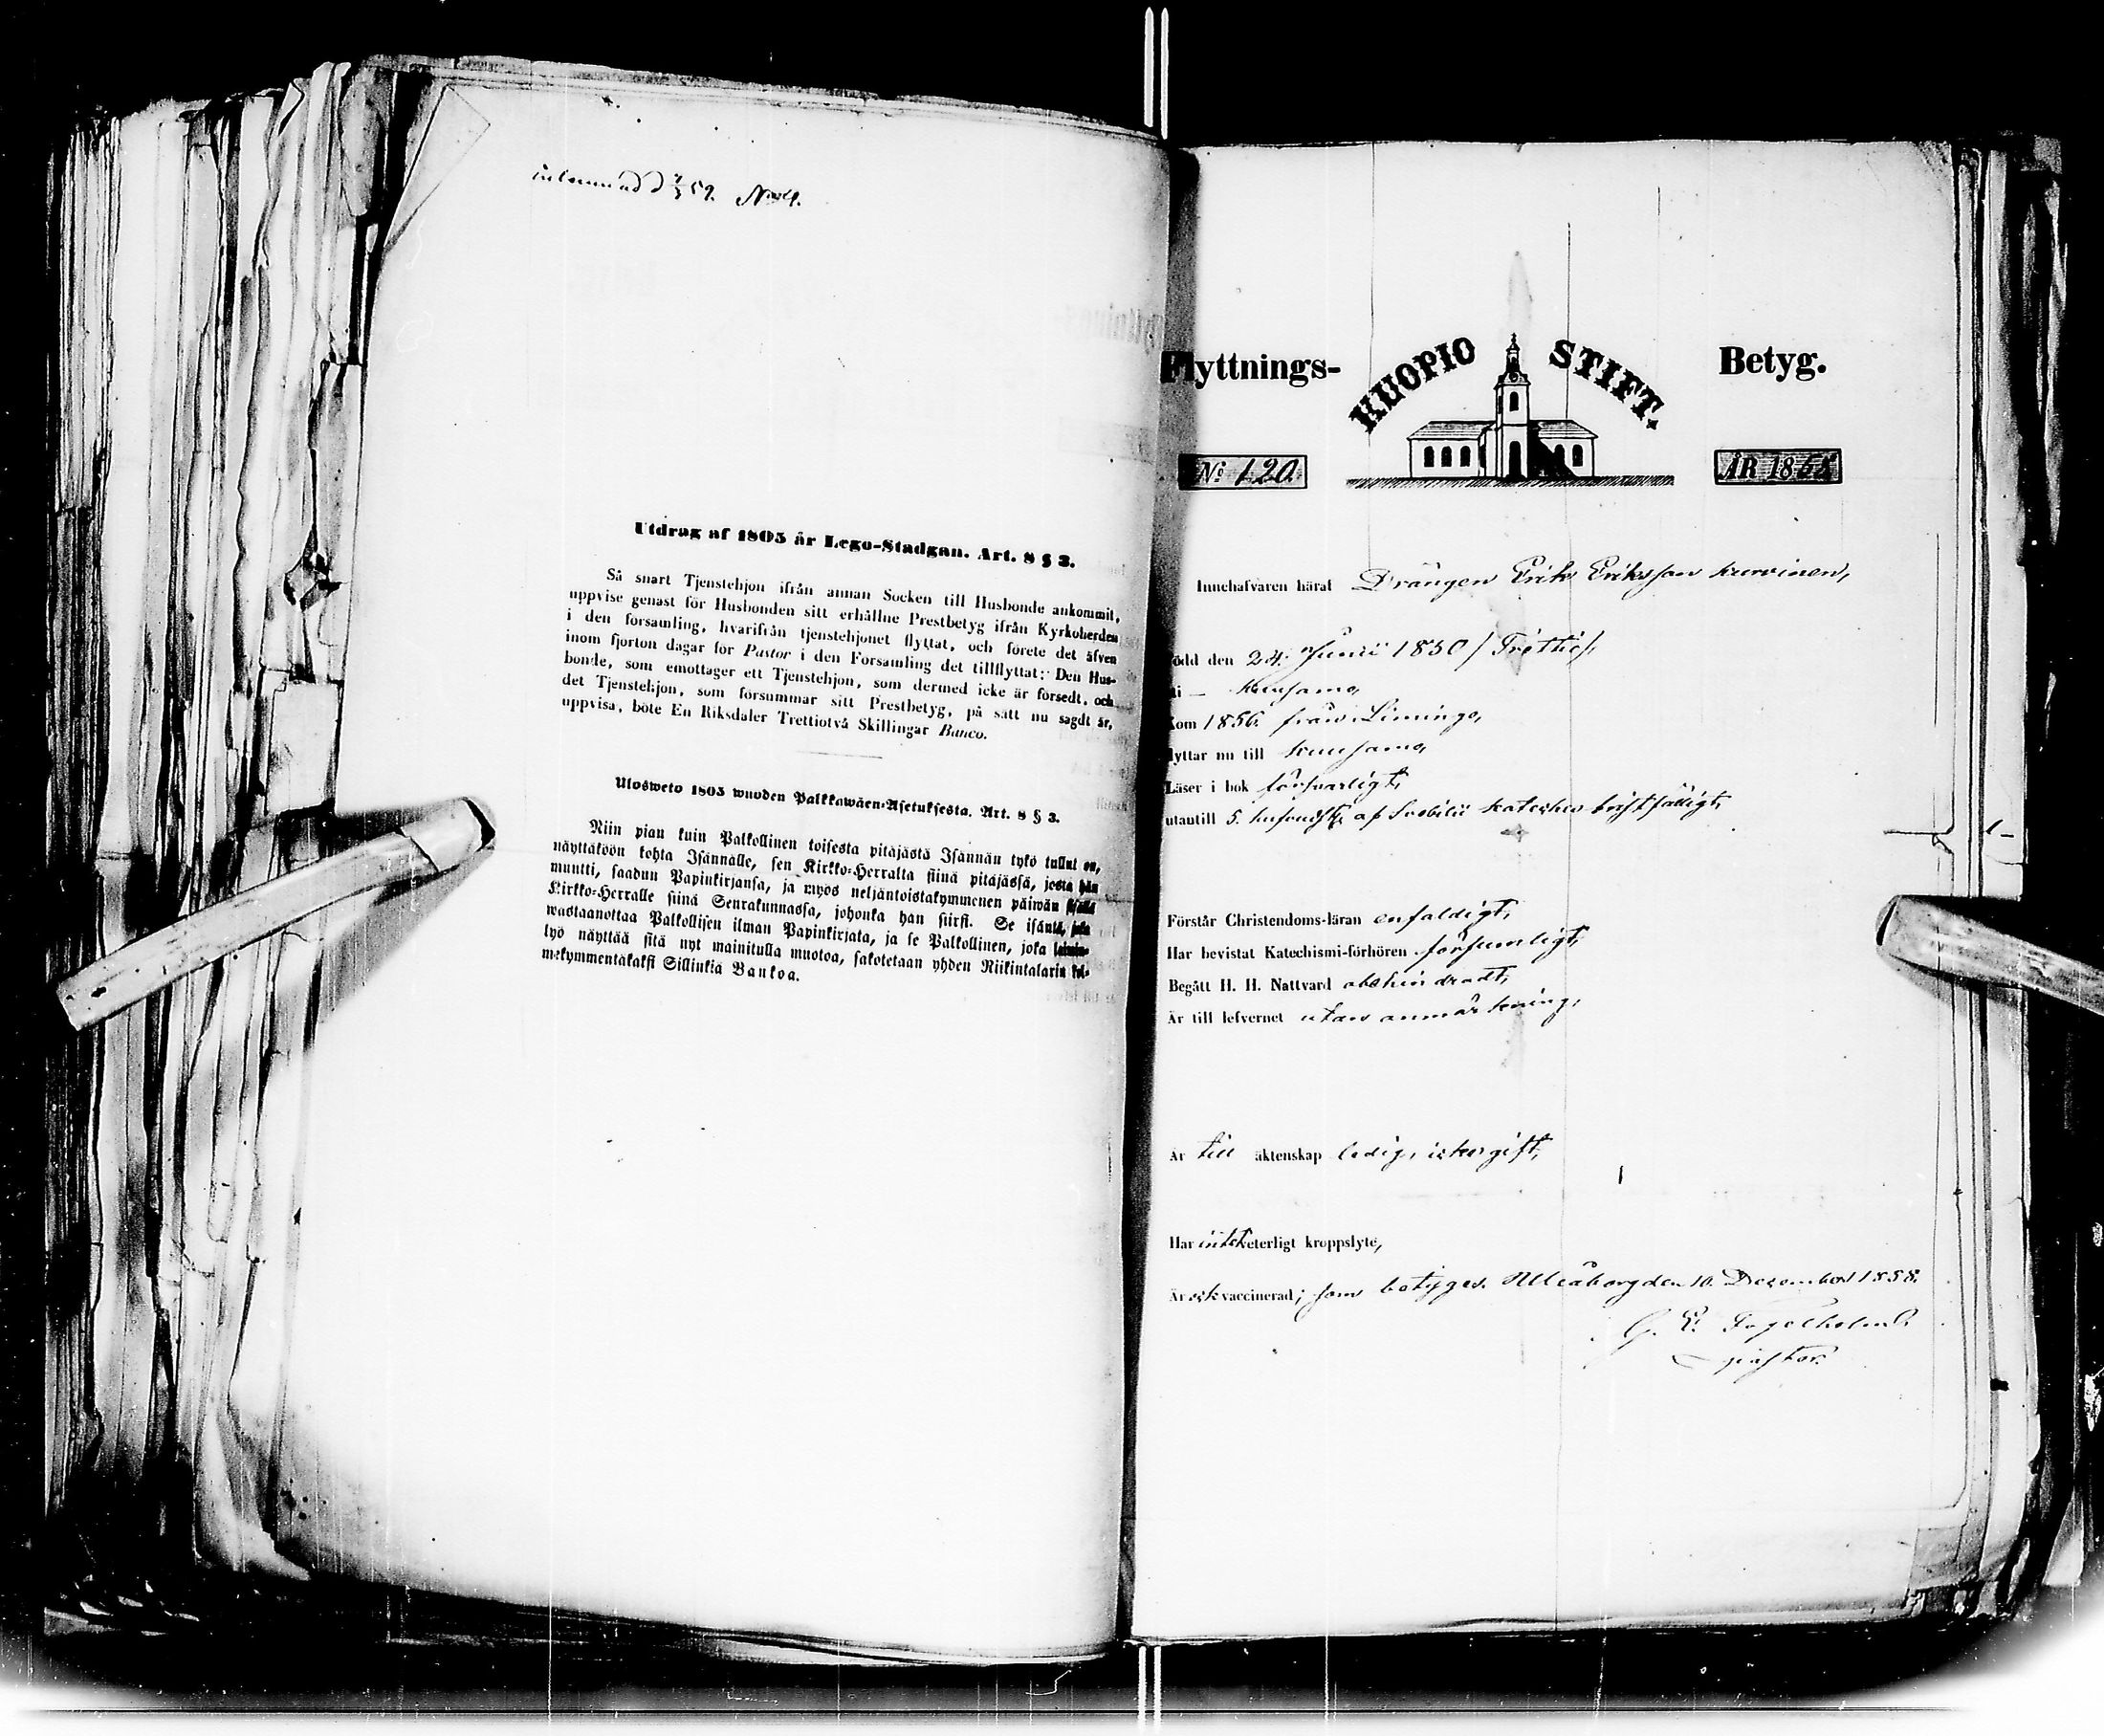 inlemnad d 7/3 59. No 4.
Utdrag af 1805 år Lego-Stadgan. Art. 8 § 3.
Så snart Tjenstehjon ifrån annan Socken till Husbonde ankommit,
uppvise genast för Husbonden sitt erhållne Prestbetyg ifrån Kyrkoherden
i den församling, hvarifrån tjenstehjonet flyttat, och förete det äfven
inom fjorton dagar för Pastor i den Församling det tillflyttat: Den Hus-
bonde, som emottager ett Tjenstehjon, som dermed icke är försedt, och
det Tjenstehjon, som försummar sitt Prestbetyg, på sätt nu sagdt är,
uppvisa, böte En Riksdaler Trettiotvå Skillingar Banco.
Ulosweto 1805 wuoden Palkkawäen-Asetuksesta. Art. 8 § 3.
Niin pian kuin Palkollinen toisesta pitäjästä Isännän tykö tullut on,
näyttäköön kohta Isännälle, sen Kirkko-Herralta siinä pitäjässä, josta hän
muutti, saadun Papinkirjansa, ja myös neljäntoistakymmenen päiwän sisällä
Kirkko-Herralle siinä Seurakunnassa, johonka hän siirsi. Se isäntä, joka
wastaanottaa Palkollisen ilman Papinkirjata, ja se Palkollinen, joka laimin-
lyö näyttää sitä nyt mainitulla muotoa, sakotetaan yhden Riikintalarin kol-
mekymmentäkaksi Sillinkiä Bankoa.
Flyttnings- KUOPIO STIFT. Betyg.
No 120. ÅR 1858
Innehafvaren häraf Drängen Erik Eriksson Kurvinen,
född den 24. Junii 1830 /Trettio/.
i — Kuusamo,
Kom 1856. från Limingo,
flyttar nu till Kuusamo,
Läser i bok försvarligt,
utantill 5. hufvudst. af Svebilii Kateches bristfälligt,
Förstår Christendoms-läran enfaldigt,
Har bevistat Katechismi-förhören försumligt,
Begått H. H. Nattvard obehindradt,
Är till lefvernet utan anmärkning,
Är till äktenskap ledig, icke gift,
Har intet veterligt kroppslyte,
Är ock vaccinerad; som betygas. Uleåborg den 10. December 1858.
G. E. Fogelholm.
pastor.